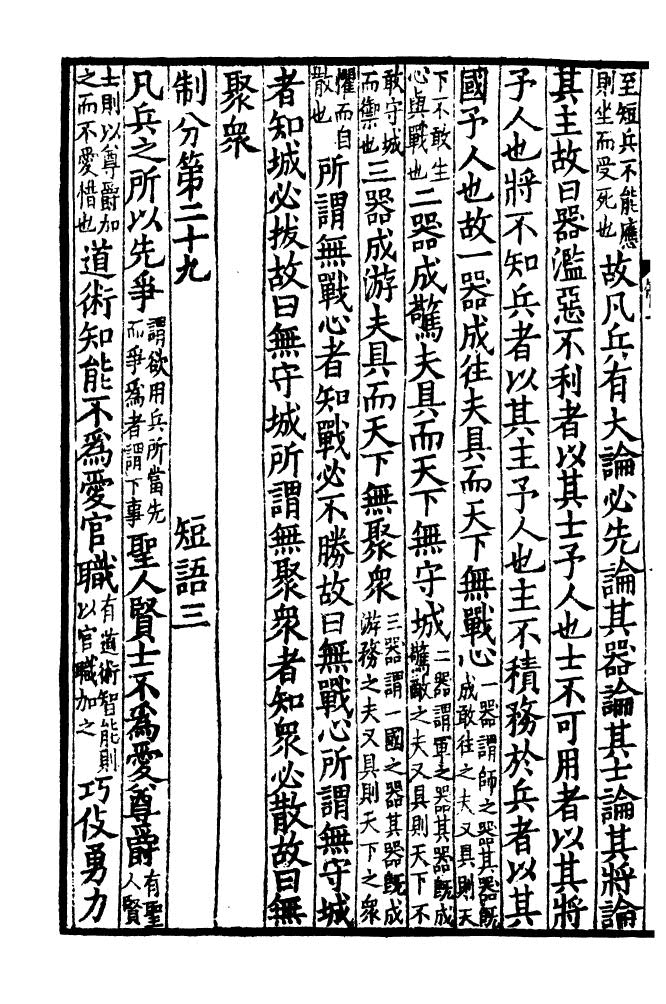 至短兵不能應則坐而受死也故凡兵有大論必先論其器論其士論其將論
其主故曰器濫惡不利者以其士予人也士不可用者以其將
予人也將不知兵者以其主予人也主不積務於兵者以其
國予人也故一器成往夫具而天下無戰心一器謂師之器其器旣成敢往之夫又具則天
下不敢生心與戰也二器成驚夫具而天下無守城二器謂軍之器其器旣成驚敵之夫又具則天下不
敢守城而禦也三器成游夫具而天下無聚衆三器謂一國之器其器旣成游務之夫又具則天下之衆
懼而自散也所謂無戰心者知戰必不勝故曰無戰心所謂無守城
者知城必拔故曰無守城所謂無聚衆者知衆必散故曰無
聚衆
制分第二十九 短語三
凡兵之所以先爭謂欲用兵所當先而爭爲者謂下事聖人賢士不爲愛尊爵有聖人賢
士則以尊爵加之而不愛惜也道術知能不爲愛官職有道術智能則以官職加之巧伎勇力